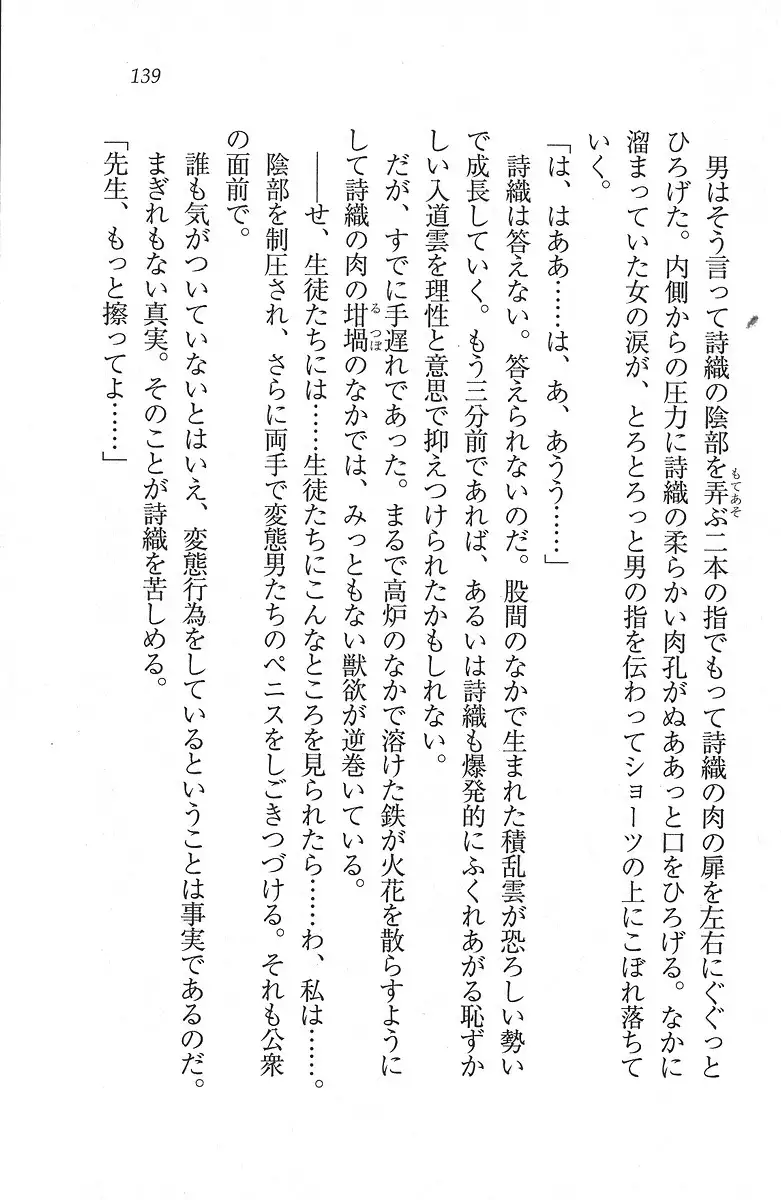 139
男はそう言って詩織の陰部を弄ぶ二本の指でもって詩織の肉の扉を左右にぐぐっと
もてあそ
ひろげた。内側からの圧力に詩織の柔らかい肉孔がぬああっと口をひろげる。なかに
溜まっていた女の涙が、とろとろっと男の指を伝わってショーツの上にこぼれ落ちて
いく。
「は、はああ……は、あ、あうう……」
詩織は答えない。答えられないのだ。股間のなかで生まれた積乱雲が恐ろしい勢い
で成長していく。もう三分前であれば、あるいは詩織も爆発的にふくれあがる恥ずか
しい入道雲を理性と意思で抑えつけられたかもしれない。
だが、すでに手遅れであった。まるで高炉のなかで溶けた鉄が火花を散らすように
して詩織の肉の坩堝のなかでは、みっともない獣欲が逆巻いている。
るつぼ
――せ、生徒たちには……生徒たちにこんなところを見られたら……わ、私は……。
陰部を制圧され、さらに両手で変態男たちのペニスをしごきつづける。それも公衆
の面前で。
誰も気がついていないとはいえ、変態行為をしているということは事実であるのだ。
まぎれもない真実。そのことが詩織を苦しめる。
「先生、もっと擦ってよ……」